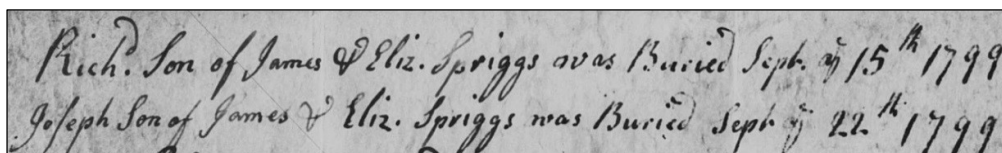 Rich.d Son of James & Eliz. Spriggs was Buried Sept. ye 15th 1799
Joseph Son of James & Eliz. Spriggs was Buried Sept ye 22th 1799